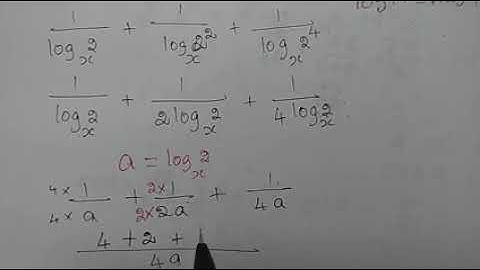 1/log_x 2 + 1/log_x 2^2 + 1/log_x 2^4
1/log_x 2 + 1/2log_x 2 + 1/4log_x 2
a = log_x 2
4×1/4×a + 2×1/2×2a + 1/4a
4 + 2 + 1/4a